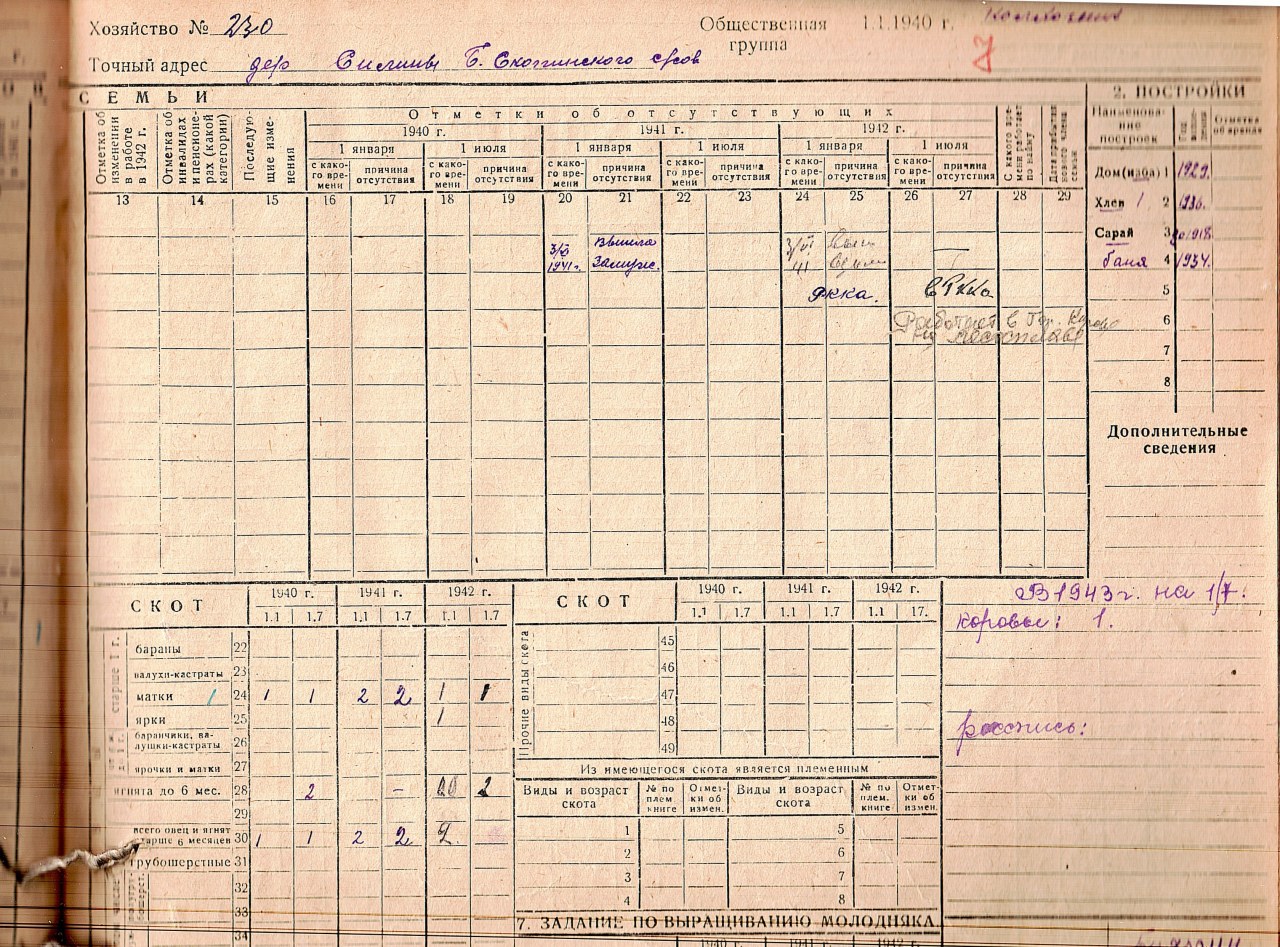 Хозяйство № 230
Общественная группа 1.1.1940 г.
Точный адрес дер
С Е М Ь И
Отметка об изменении в работе в 1942 г.
Отметка об инвалидах и пенсионерах (какой категории)
Последующие изменения
Отметки об отсутствующих
1940 г. 1941 г. 1942 г.
1 января 1 июля 1 января 1 июля 1 января 1 июля
с какого времени причина отсутствия с какого времени причина отсутствия с какого времени причина отсутствия с какого времени причина отсутствия с какого времени причина отсутствия с какого времени причина отсутствия
С какого времени работает по найму
13 14 15 16 17 18 19 20 21 22 23 24 25 26 27 28 29
3/VI 1941г. вышла замуж.
3/VI
РККА. в РККа
Работает в
2. ПОСТРОЙКИ
Наименование построек
Дом (изба) 1 1929.
Хлев 1 2 1936.
Сарай 3 до 1918.
баня 4 1934.
5
6
7
8
Дополнительные сведения
СКОТ 1940 г. 1941 г. 1942 г.
1.1 1.7 1.1 1.7 1.1 1.7
старше 1 г.
бараны 22
валухи-кастраты 23
матки 1 24 1 1 2 2 1 1
ярки 25 1
баранчики, валушки-кастраты 26
ярочки и матки 27
ягнята до 6 мес. 28 2 - 2
29
всего овец и ягнят старше 6 месяцев 30 1 1 2 2 2
грубошерстные 31
32
33
34
СКОТ 1940 г. 1941 г. 1942 г.
1.1 1.7 1.1 1.7 1.1 17.
Прочие виды скота
45
46
47
48
49
Из имеющегося скота является племенным
Виды и возраст скота № по плем книге Отметки об измен. Виды и возраст скота № по плем. книге Отметки об измен.
1 5
2 6
3 7
4 8
7. ЗАДАНИЕ ПО ВЫРАЩИВАНИЮ МОЛОДНЯКА
1940 г. 1941 г. 1942 г.
В 1943 г. на 1/7.
коровы: 1.
роспись: